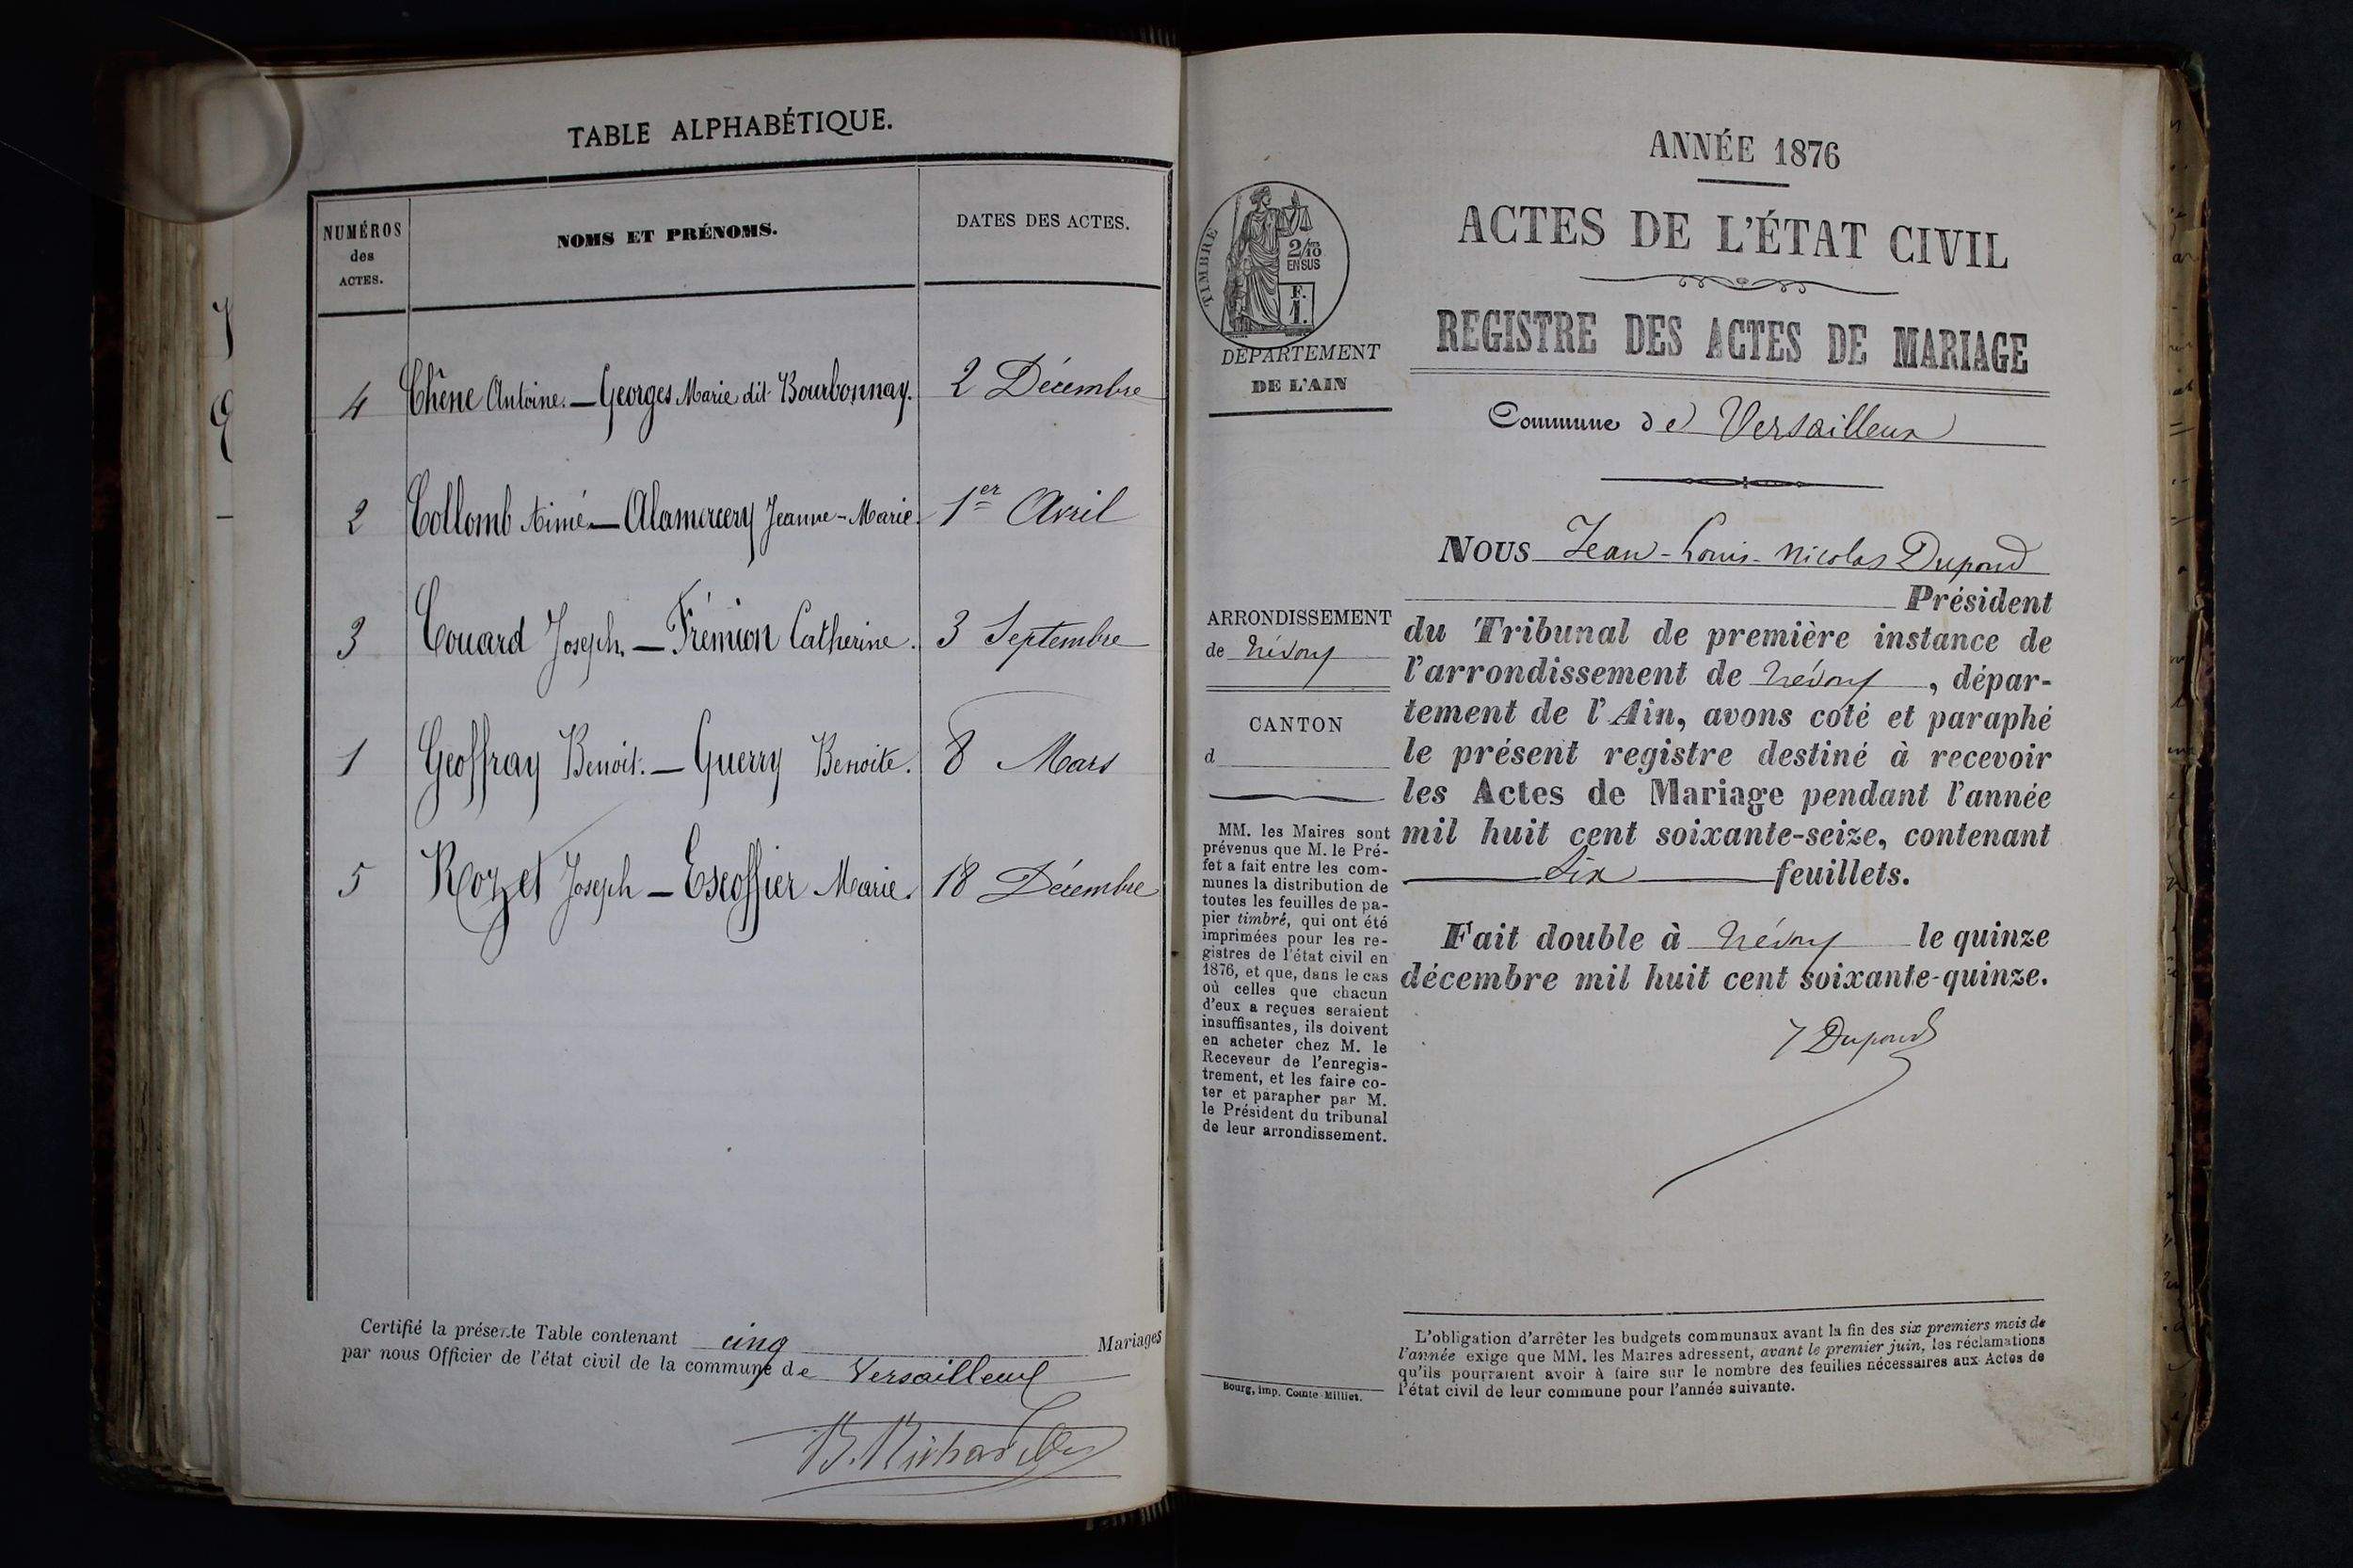 TABLE ALPHABÉTIQUE.
NUMÉROS
des
ACTES.
NOMS ET PRÉNOMS.
DATES DES ACTES.
4 Chêne Antoine. — Georges Marie dit Bourbonnay. 2 Décembre
2 Collomb Aimé — Alamercery Jeanne-Marie. 1er Avril
3 Couard Joseph. — Frémion Catherine. 3 Septembre
1 Geoffray Benoit. — Guerry Benoite. 8 Mars
5 Rozet Joseph — Escoffier Marie. 18 Décembre
Certifié la présente Table contenant cinq Mariages
par nous Officier de l'état civil de la commune de Versailleux
ANNÉE 1876
ACTES DE L'ÉTAT CIVIL
REGISTRE DES ACTES DE MARIAGE
Commune de Versailleux
TIMBRE
2/10
EN SUS
F.
1.
DÉPARTEMENT
DE L'AIN
ARRONDISSEMENT
de Trévoux
CANTON
d
MM. les Maires sont
prévenus que M. le Pré-
fet a fait entre les com-
munes la distribution de
toutes les feuilles de pa-
pier timbré, qui ont été
imprimées pour les re-
gistres de l'état civil en
1876, et que, dans le cas
où celles que chacun
d'eux a reçues seraient
insuffisantes, ils doivent
en acheter chez M. le
Receveur de l'enregis-
trement, et les faire co-
ter et parapher par M.
le Président du tribunal
de leur arrondissement.
Bourg, imp. Comte-Milliet.
NOUS Jean-Louis-Nicolas Dupond
Président
du Tribunal de première instance de
l'arrondissement de Trévoux, dépar-
tement de l'Ain, avons coté et paraphé
le présent registre destiné à recevoir
les Actes de Mariage pendant l'année
mil huit cent soixante-seize, contenant
Six feuillets.
Fait double à Trévoux le quinze
décembre mil huit cent soixante-quinze.
Dupond
L'obligation d'arrêter les budgets communaux avant la fin des six premiers mois de
l'année exige que MM. les Maires adressent, avant le premier juin, les réclamations
qu'ils pourraient avoir à faire sur le nombre des feuilles nécessaires aux Actes de
l'état civil de leur commune pour l'année suivante.